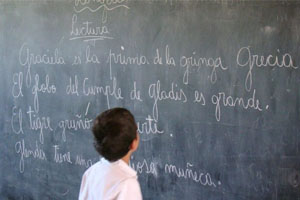 Lectura
Graciela es la prima de la gringa Grecia
El globo del cumple de gladis es grande.
El tigre gruñó
tiene una muñeca.